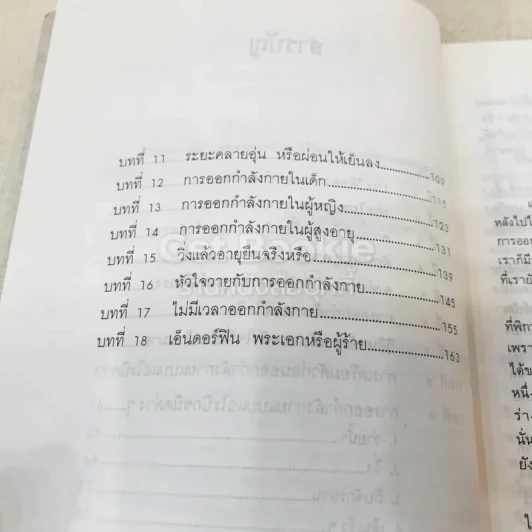 บทที่ 11 ระยะคลายอุ่น หรือผ่อนให้เย็นลง 109
บทที่ 12 การออกกำลังกายในเด็ก 115
บทที่ 13 การออกกำลังกายในผู้หญิง 123
บทที่ 14 การออกกำลังกายในผู้สูงอายุ 131
บทที่ 15 วิ่งแล้วอายุยืนจริงหรือ 139
บทที่ 16 หัวใจวายกับการออกกำลังกาย 145
บทที่ 17 ไม่มีเวลาออกกำลังกาย 155
บทที่ 18 เอ็นดอร์ฟิน พระเอกหรือผู้ร้าย 163
Get Bookie
หลังไปใ
การออ
เราก็มี
ที่เรายั
ที่พิกา
เพรา
ได้ข
หนึ่
ร่าง
นั้น
ยัง
ใ